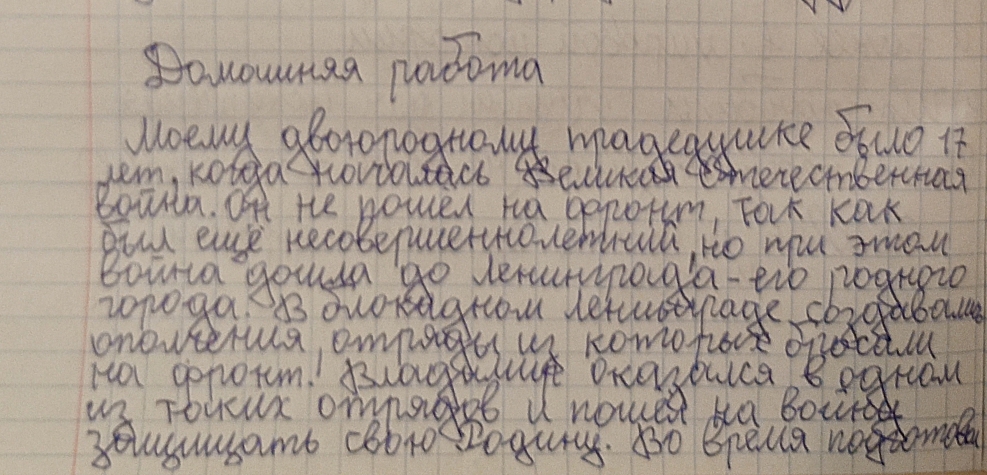 Домашняя работа
Моему двоюродному прадедушке было 17
лет, когда началась Великая Отечественная
война. Он не пошел на фронт, так как
был ещё несовершеннолетний, но при этом
война дошла до Ленинграда - его родного
города. В блокадном Ленинграде создавались
ополчения, отряды из которых бросали
на фронт. Владимир оказался в одном
из таких отрядов и пошел на войну
защищать свою Родину. Во время подготовки